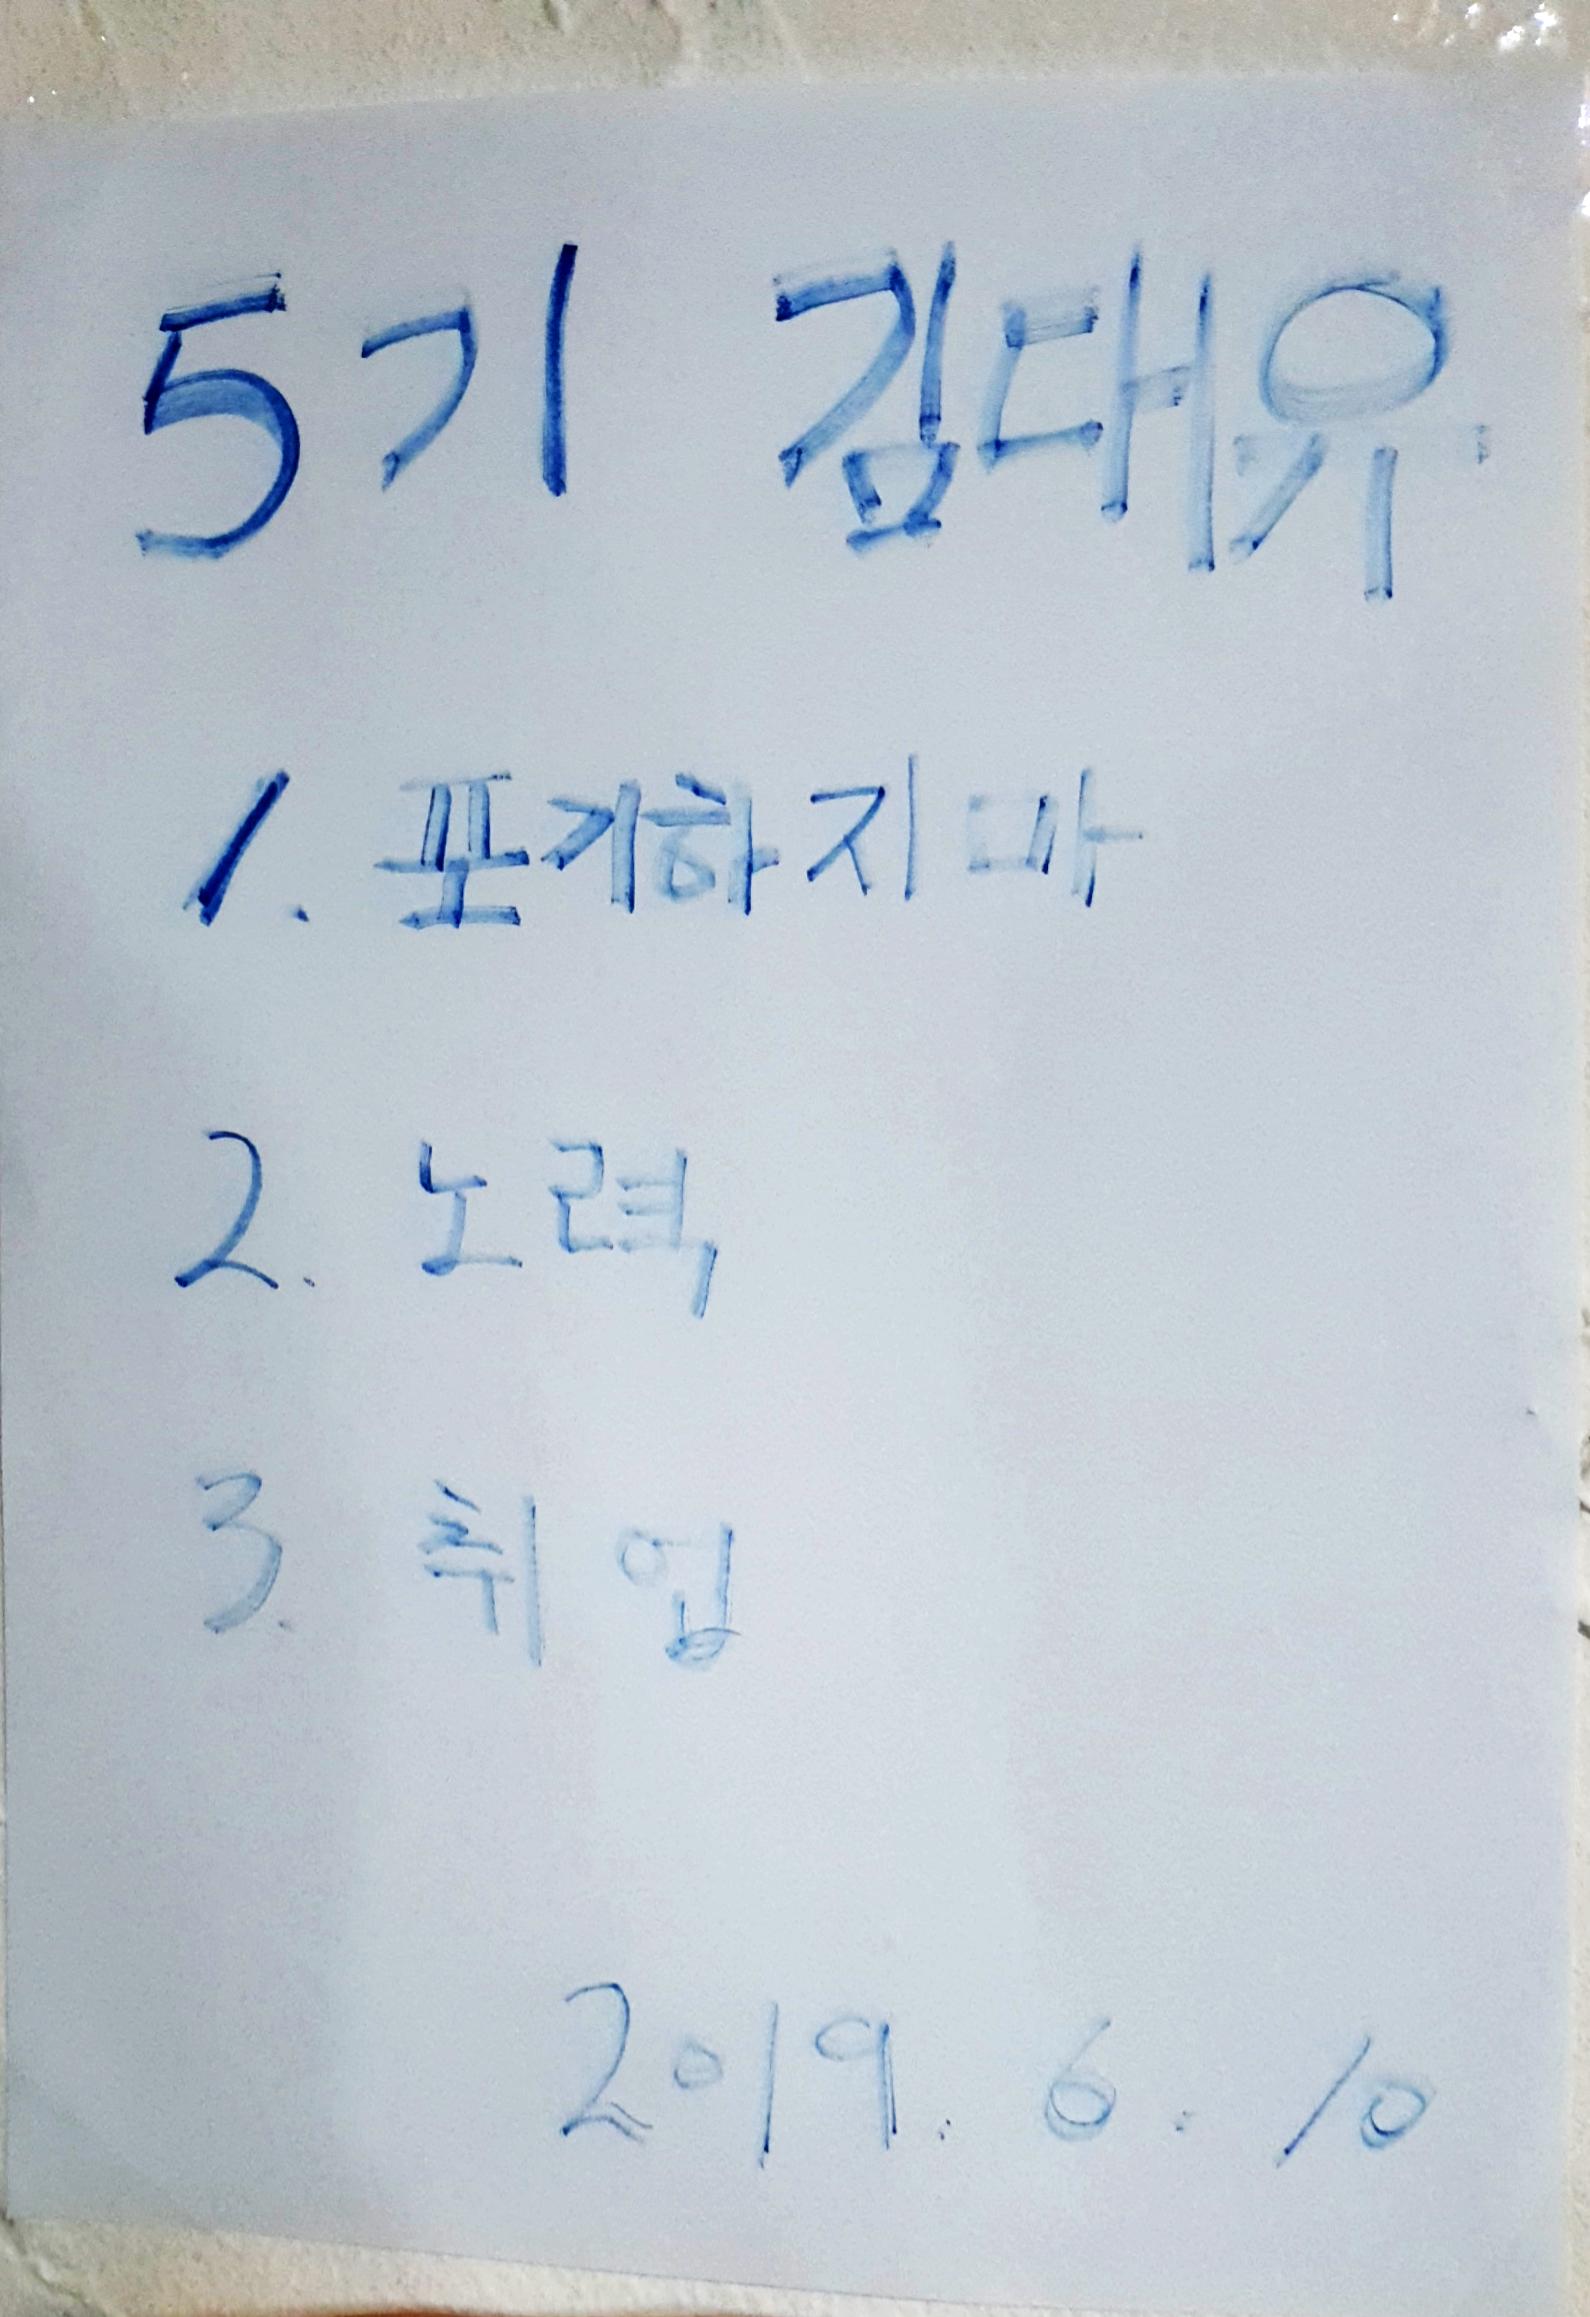 5기 김대유
1. 포기하지마
2. 노력
3. 취업
2019. 6. 10